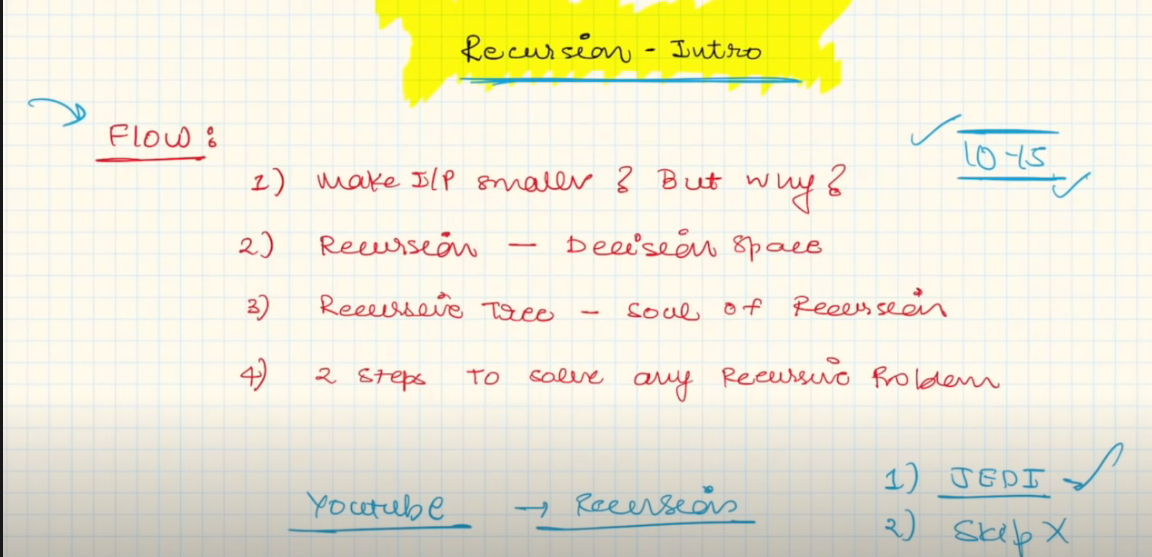 Recursion - Intro
Flow :
10-15
1) Make I/P smaller ? But why ?
2) Recursion — Decision Space
3) Recursive Tree - Soul of Recursion
4) 2 Steps to solve any Recursive Problem
1) JEDI
Youtube → Recursion
2) Skip X